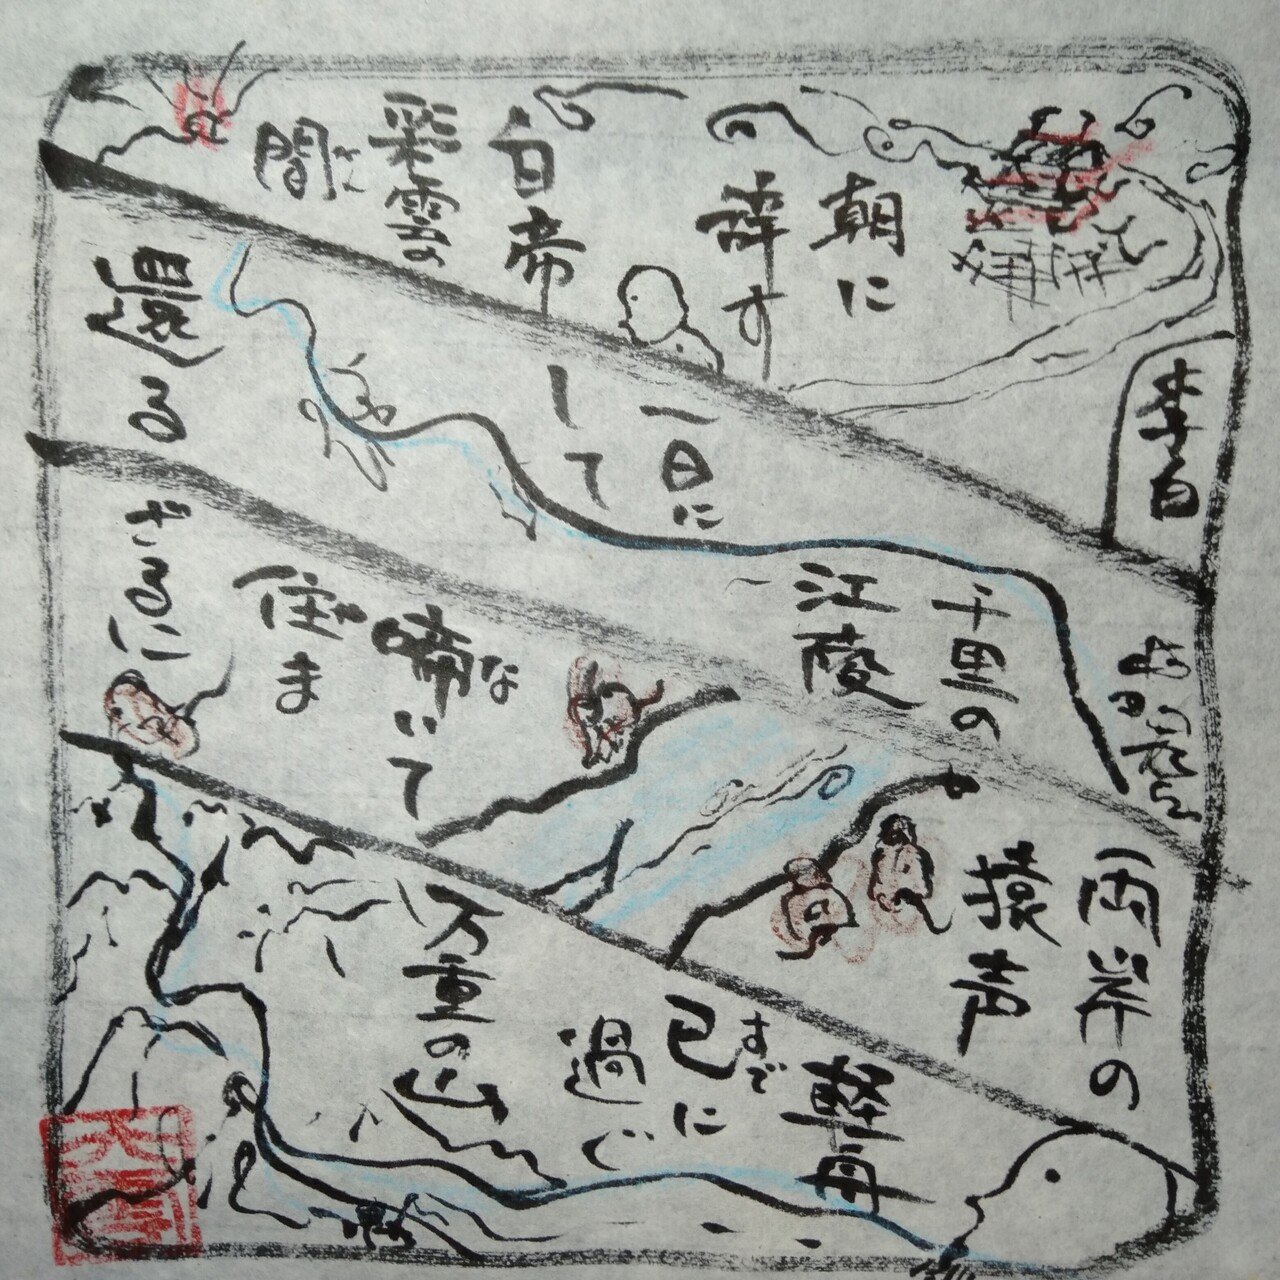 李白
朝に
辞す
白帝
彩雲の
間
一日に
して
千里の
江陵
還る
両岸の
猿声
啼いて
な
住ま
ざるに
軽舟
已に
すで
過ぐ
万重の山